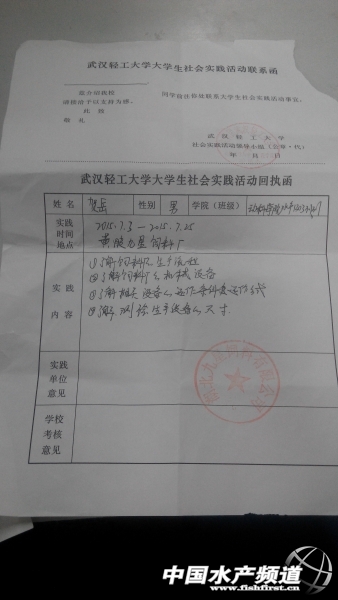 武汉轻工大学大学生社会实践活动联系函
兹介绍我校 同学前往你处联系大学生社会实践活动事宜,
请接洽予以支持为感。
此致
敬礼
武汉轻工大学
社会实践活动领导小组(公章·代)
年 月 日
武汉轻工大学大学生社会实践活动回执函
姓名 贺岳 性别 男 学院(班级)
实践时间地点 2015.7.3 — 2015.7.25
黄陂九星饲料厂
实践内容 ①了解饲料厂生产流程
②了解饲料厂的机械设备
③了解相关设备的运作条件及运作方式
④测标生产设备的尺寸
实践单位意见
学校考核意见
中国水产频道
www.fishfirst.cn